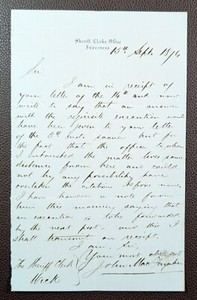 Sheriff Clerk's Office
Inverness
15th Septr. 1874
Sir,
I am in receipt of
your letter of the 14th and now
write to say that an answer
with the requisite execution
have been given to your letter
of the 5th but for
the fact that the officer to whom
I intrusted the matter lives some
distance from here and could
not by any possibility have
overtaken the citation before now.
I have however a note from
him this morning saying that
an execution is to be forwarded
by the next post - and this I
shall transmit on receipt.
I am Sir,
Your most
John
The Sheriff Clerk
Wick